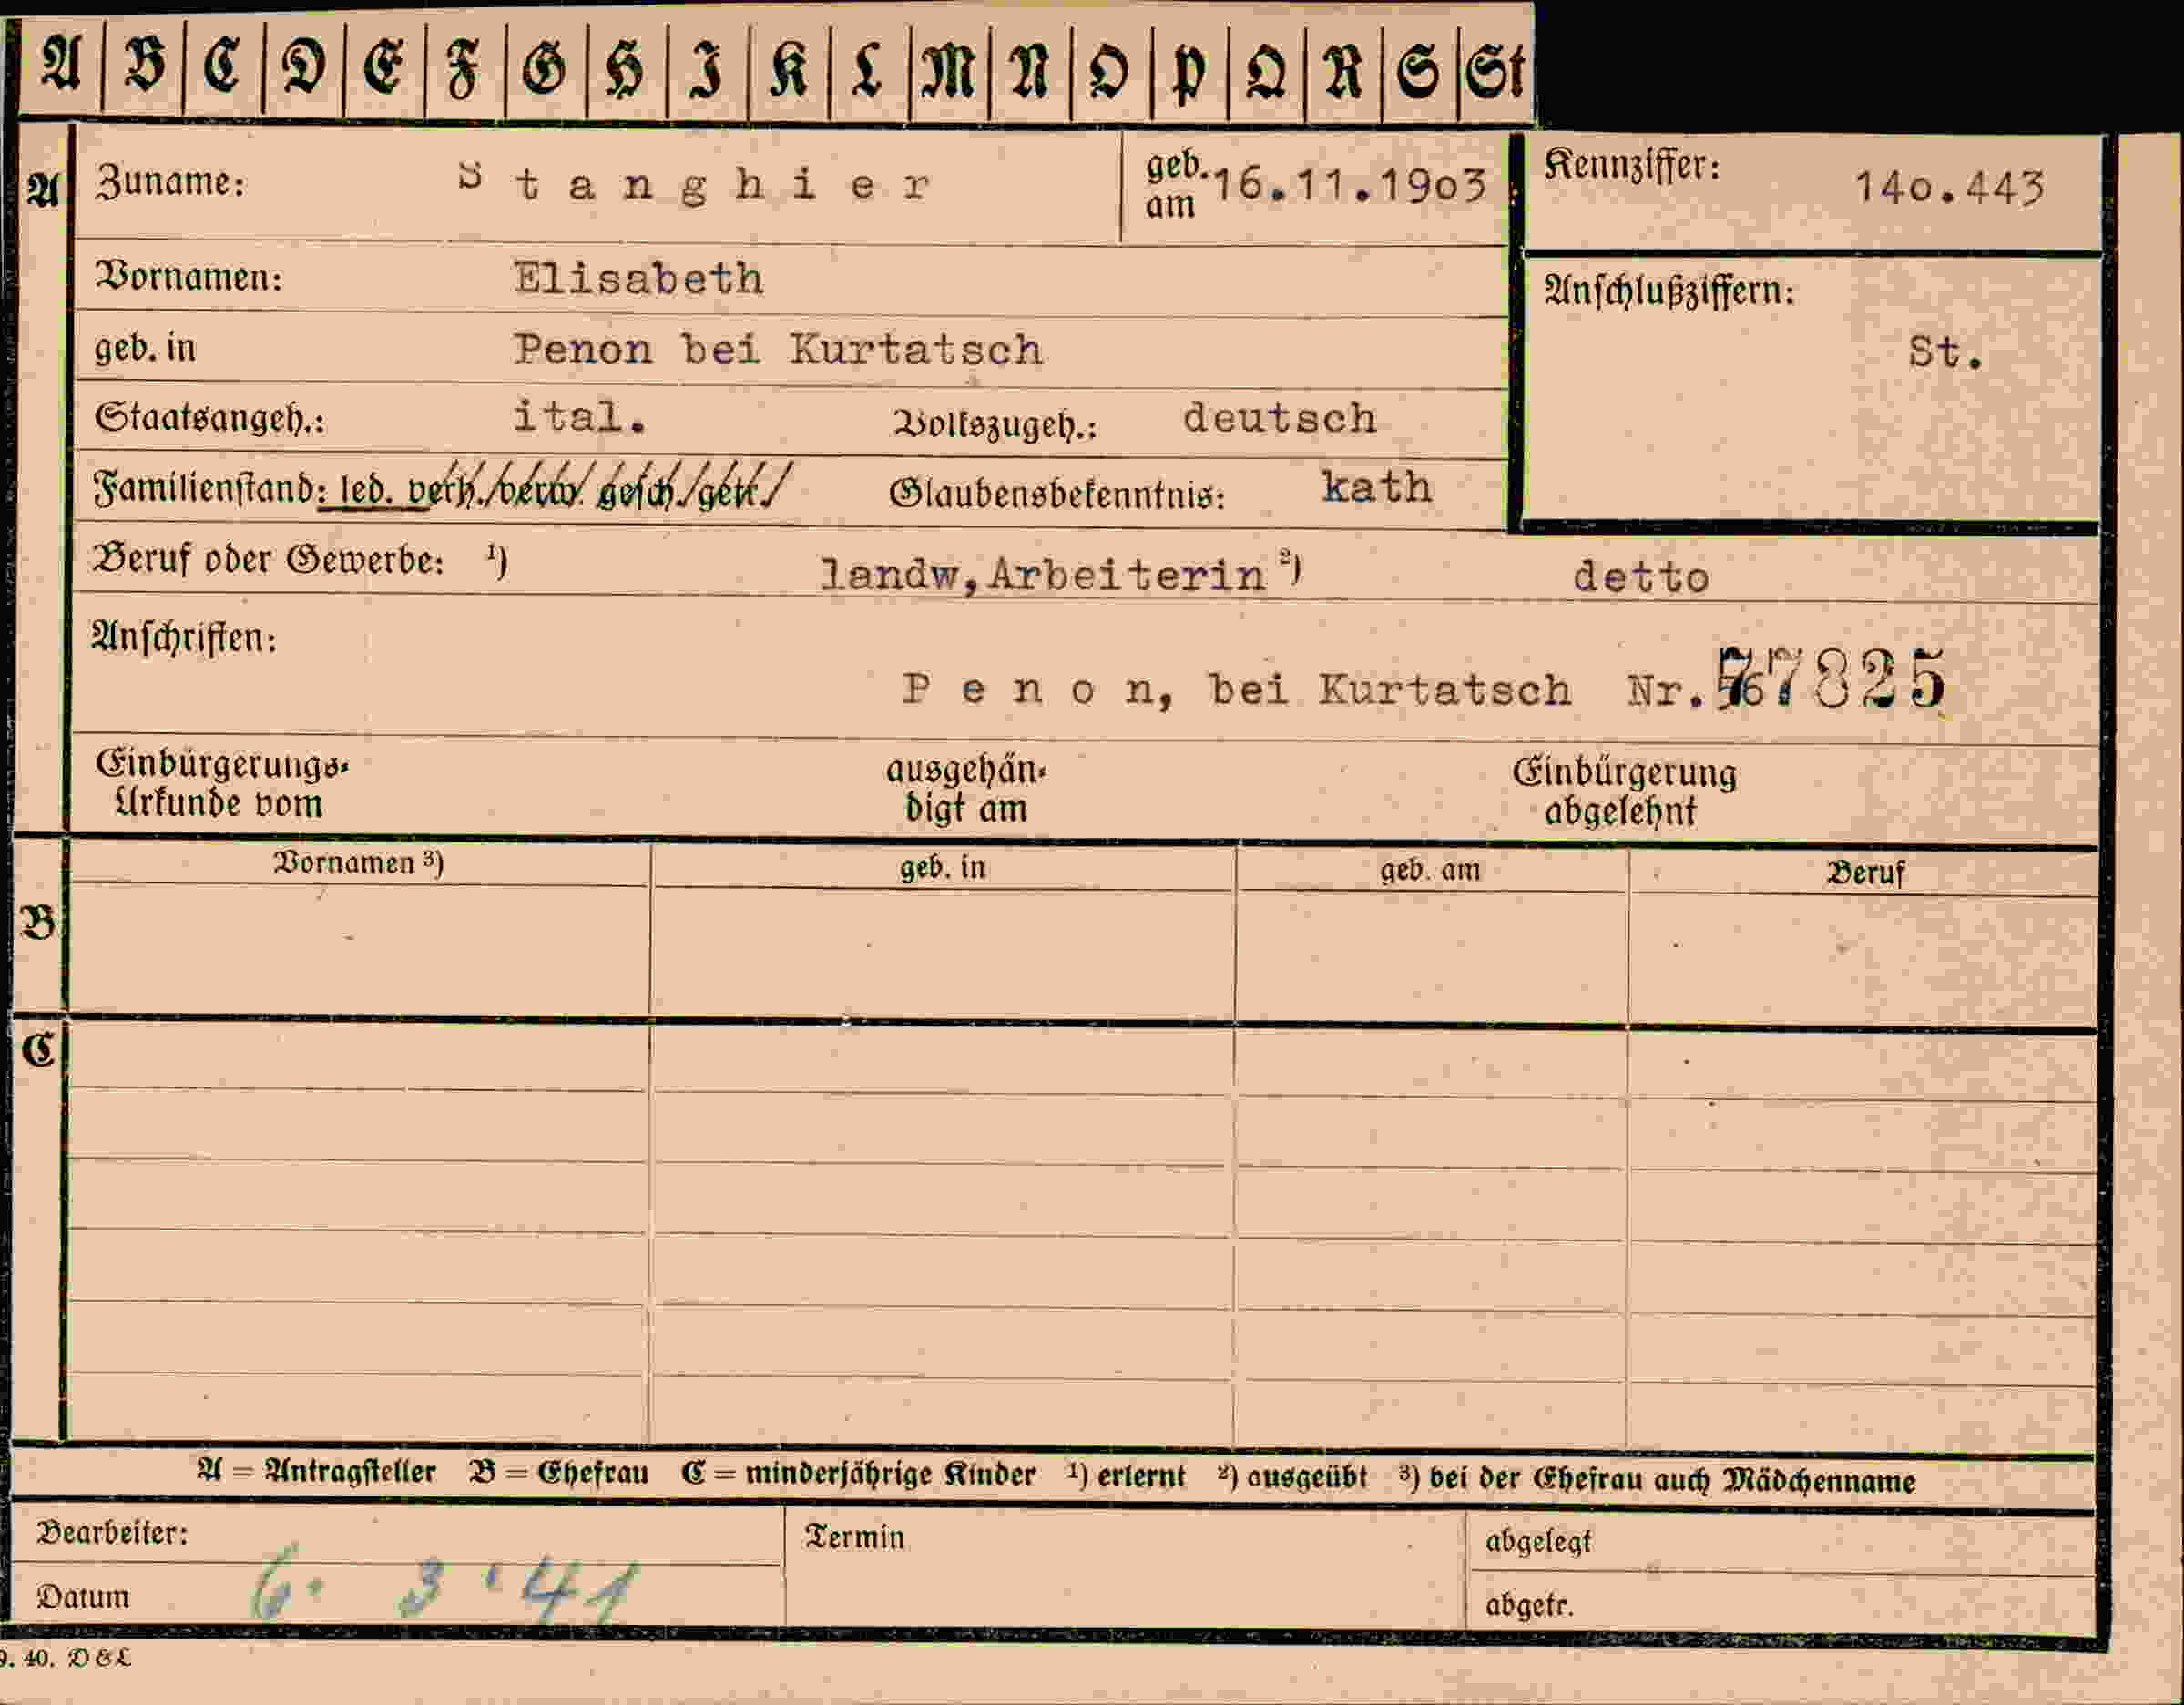 A B C D E F G H I K L M N O P Q R S St
A Zuname: Stanghier geb. am 16.11.1903 Kennziffer: 140.443
Vornamen: Elisabeth Anschlußziffern:
geb. in Penon bei Kurtatsch St.
Staatsangeh.: ital. Volkszugeh.: deutsch
Familienstand: led. verh. verw. gesch. getr. Glaubensbekenntnis: kath
Beruf oder Gewerbe: ¹) landw,Arbeiterin ²) detto
Anschriften:
Penon, bei Kurtatsch Nr. 7825
Einbürgerungs- ausgehän- Einbürgerung
Urkunde vom digt am abgelehnt
Vornamen ³) geb. in geb. am Beruf
B
C
A = Antragsteller B = Ehefrau C = minderjährige Kinder ¹) erlernt ²) ausgeübt ³) bei der Ehefrau auch Mädchenname
Bearbeiter: Termin abgelegt
Datum 6. 3.41 abgetr.
9. 40. D & L